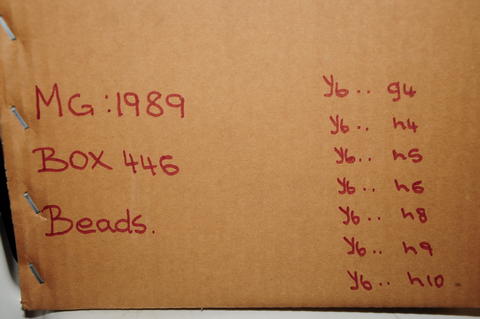 MG:1989
BOX 446
Beads.
y6.. g4
y6.. h4
y6.. h5
y6.. h6
y6.. h8
y6.. h9
y6.. h10